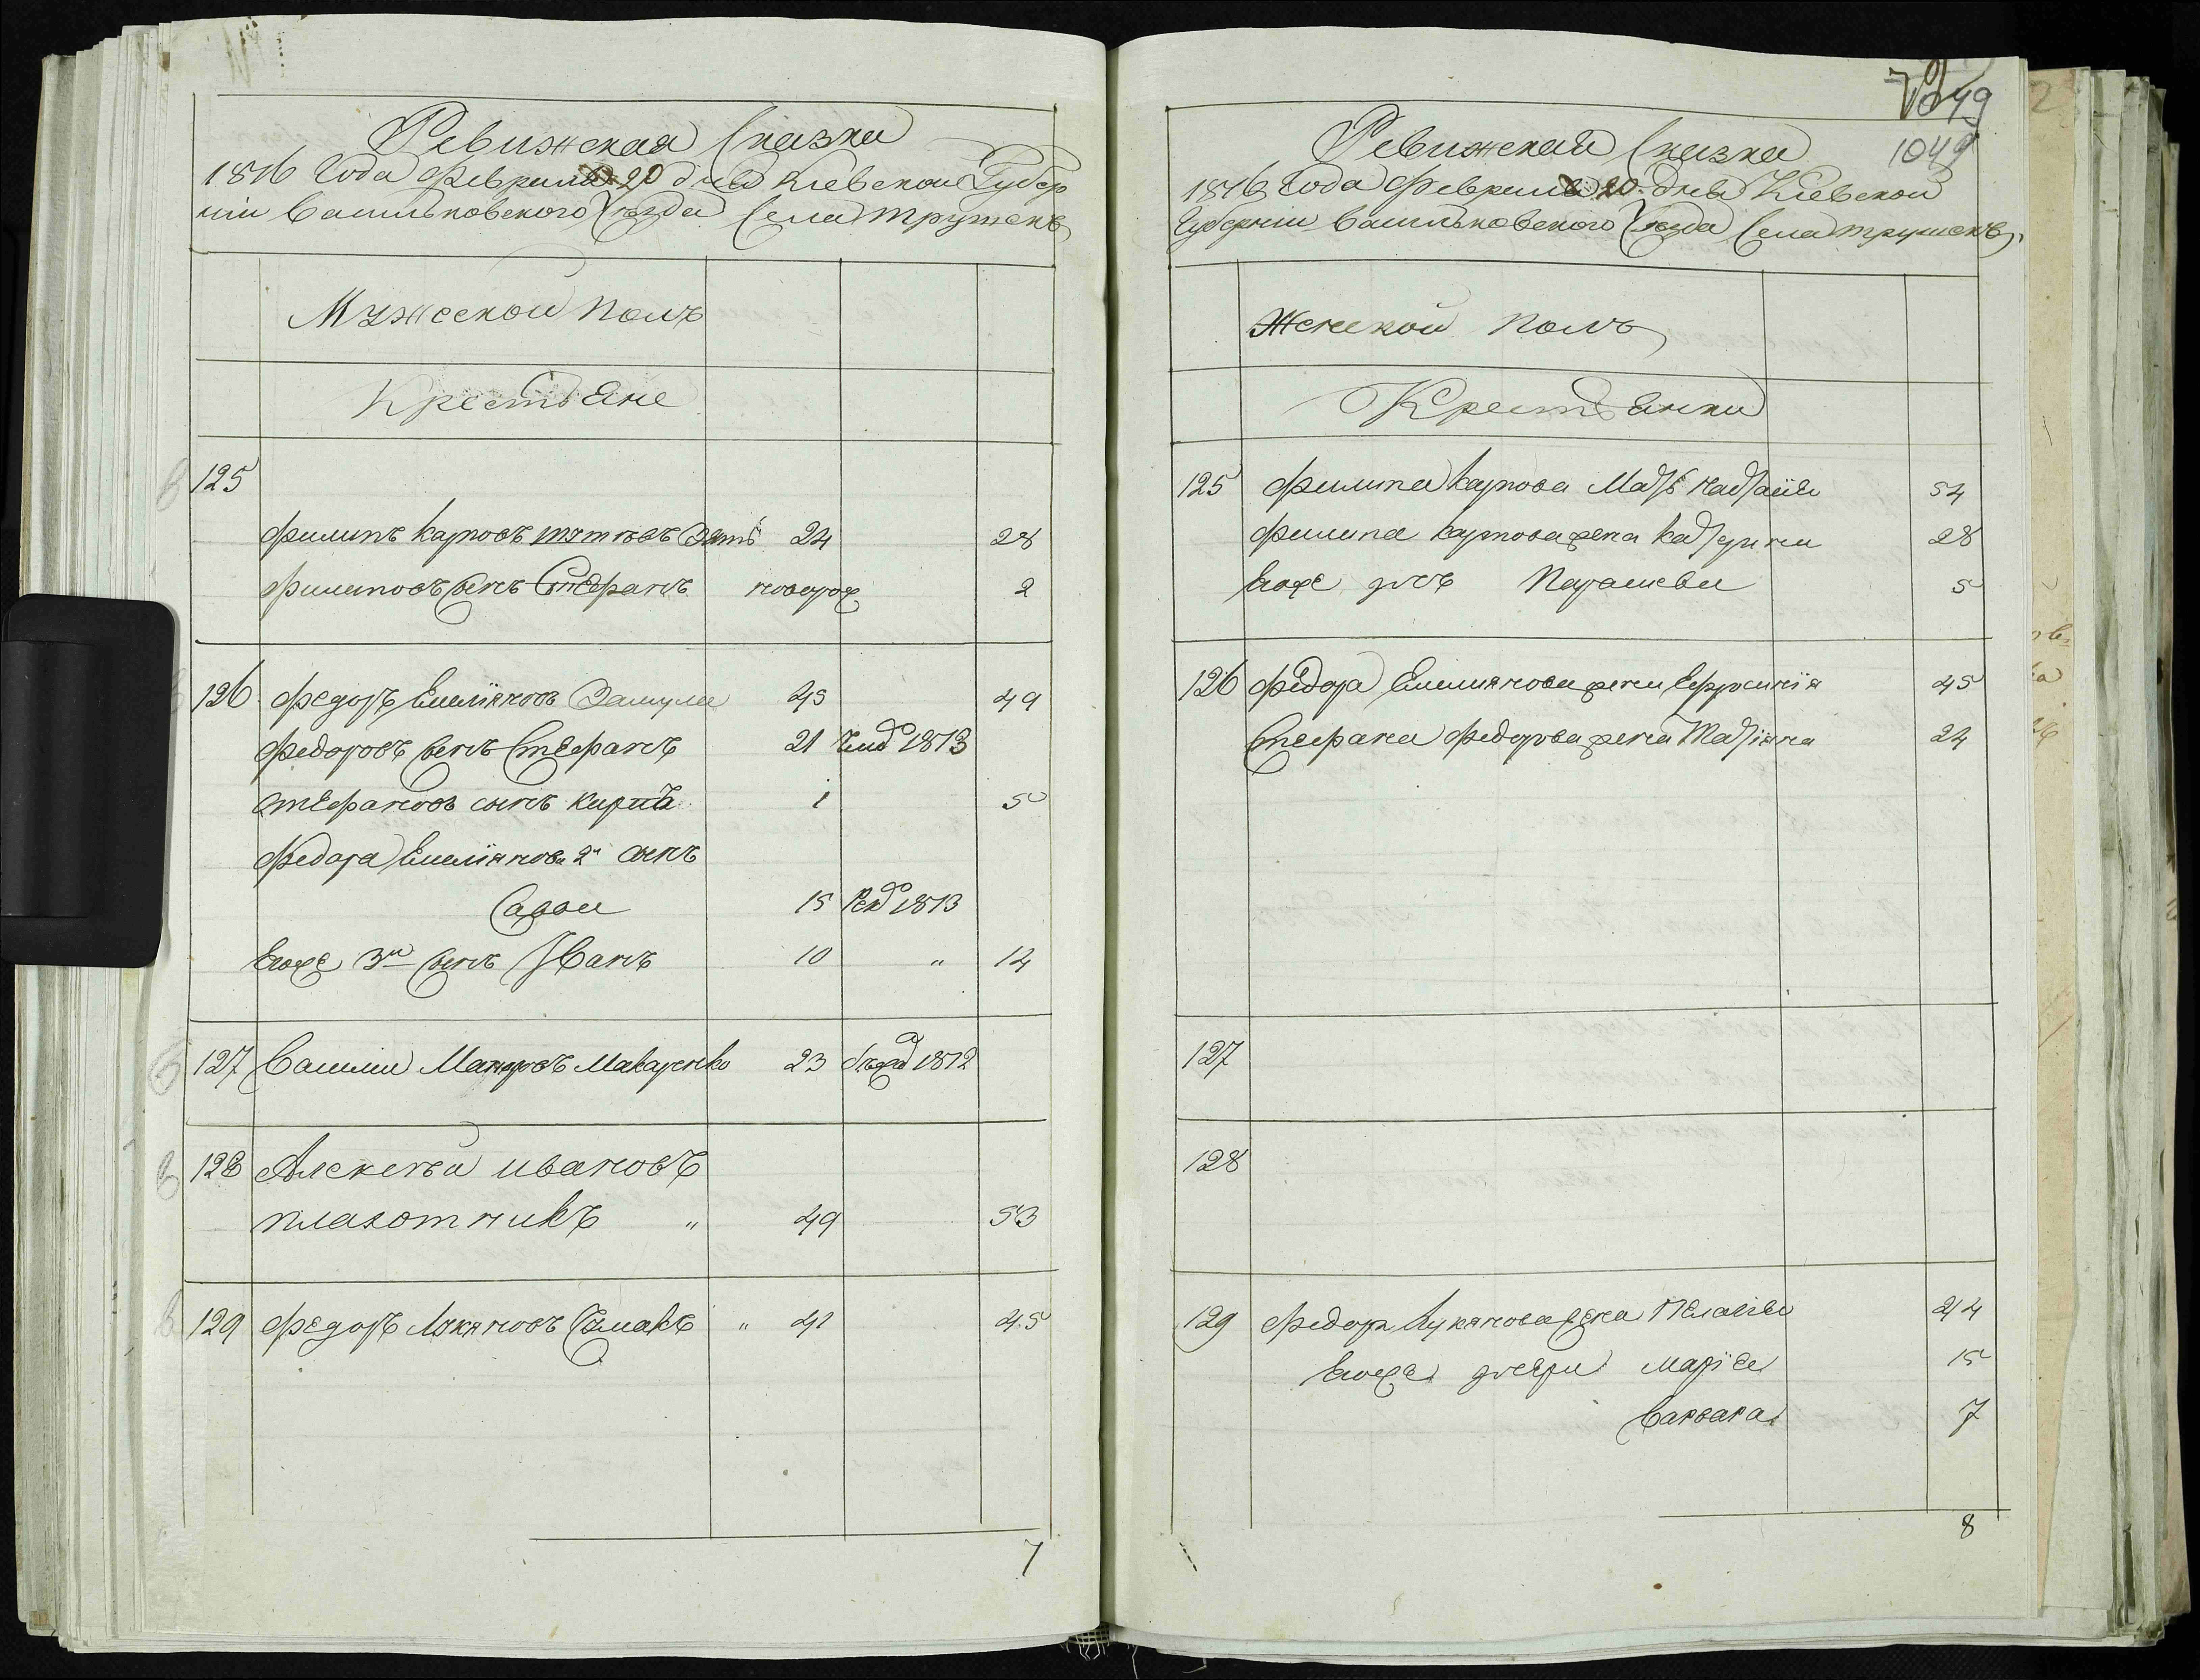 Ревижская Сказка
1816 Года Февраля 20 дня Кіевской Губер
ніи Васильковского Уезда Села Трушекъ
Мужескои Полъ
Крестьяне
125
Филипъ Карповъ зять 24 28
Филиповъ сынъ Стефанъ новорож 2
126 Федоръ Емеліяновъ Замула 45 49
Федоровъ сынъ Стефанъ 21 1813
Стефановъ сынъ Кирила 1 5
Федора Емеліянова 2й сынъ
Сава 15 рекд 1813
Егоже 3й сынъ Иванъ 10 " 14
127 Василии Макаровъ Макаренко 23 1812
128 Алексѣй Ивановъ
Плахотникъ " 49 53
129 Федоръ Лукяновъ Чмакъ " 41 45
7
1049
1049
Ревижская Сказка
1816 Года Февраля 20 дня Кіевской
Губерніи Васильковского Уезда Села Трушекъ
Женской Полъ
Крестьянки
125 Филипа Карпова Мать Наталія 54
Филипа Карпова жена Катерина 28
Егоже дочь Параскева 5
126 Федора Емелиянова жена Ефросинія 45
Стефана Федорова жена Татіяна 24
127
128
129 Федора Лукянова жена Пелагія 44
Егоже дочери Марія 15
Варвара 7
8